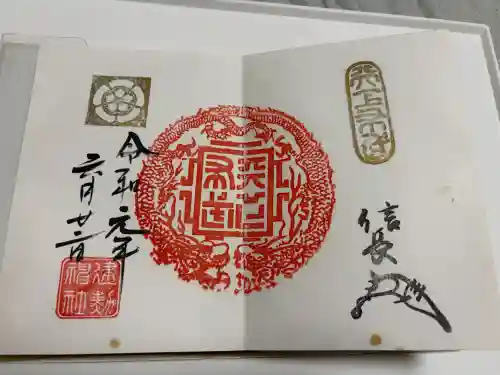 天下布武
信長
天下
布武
令和元年
六月廿二日
建勲
神社